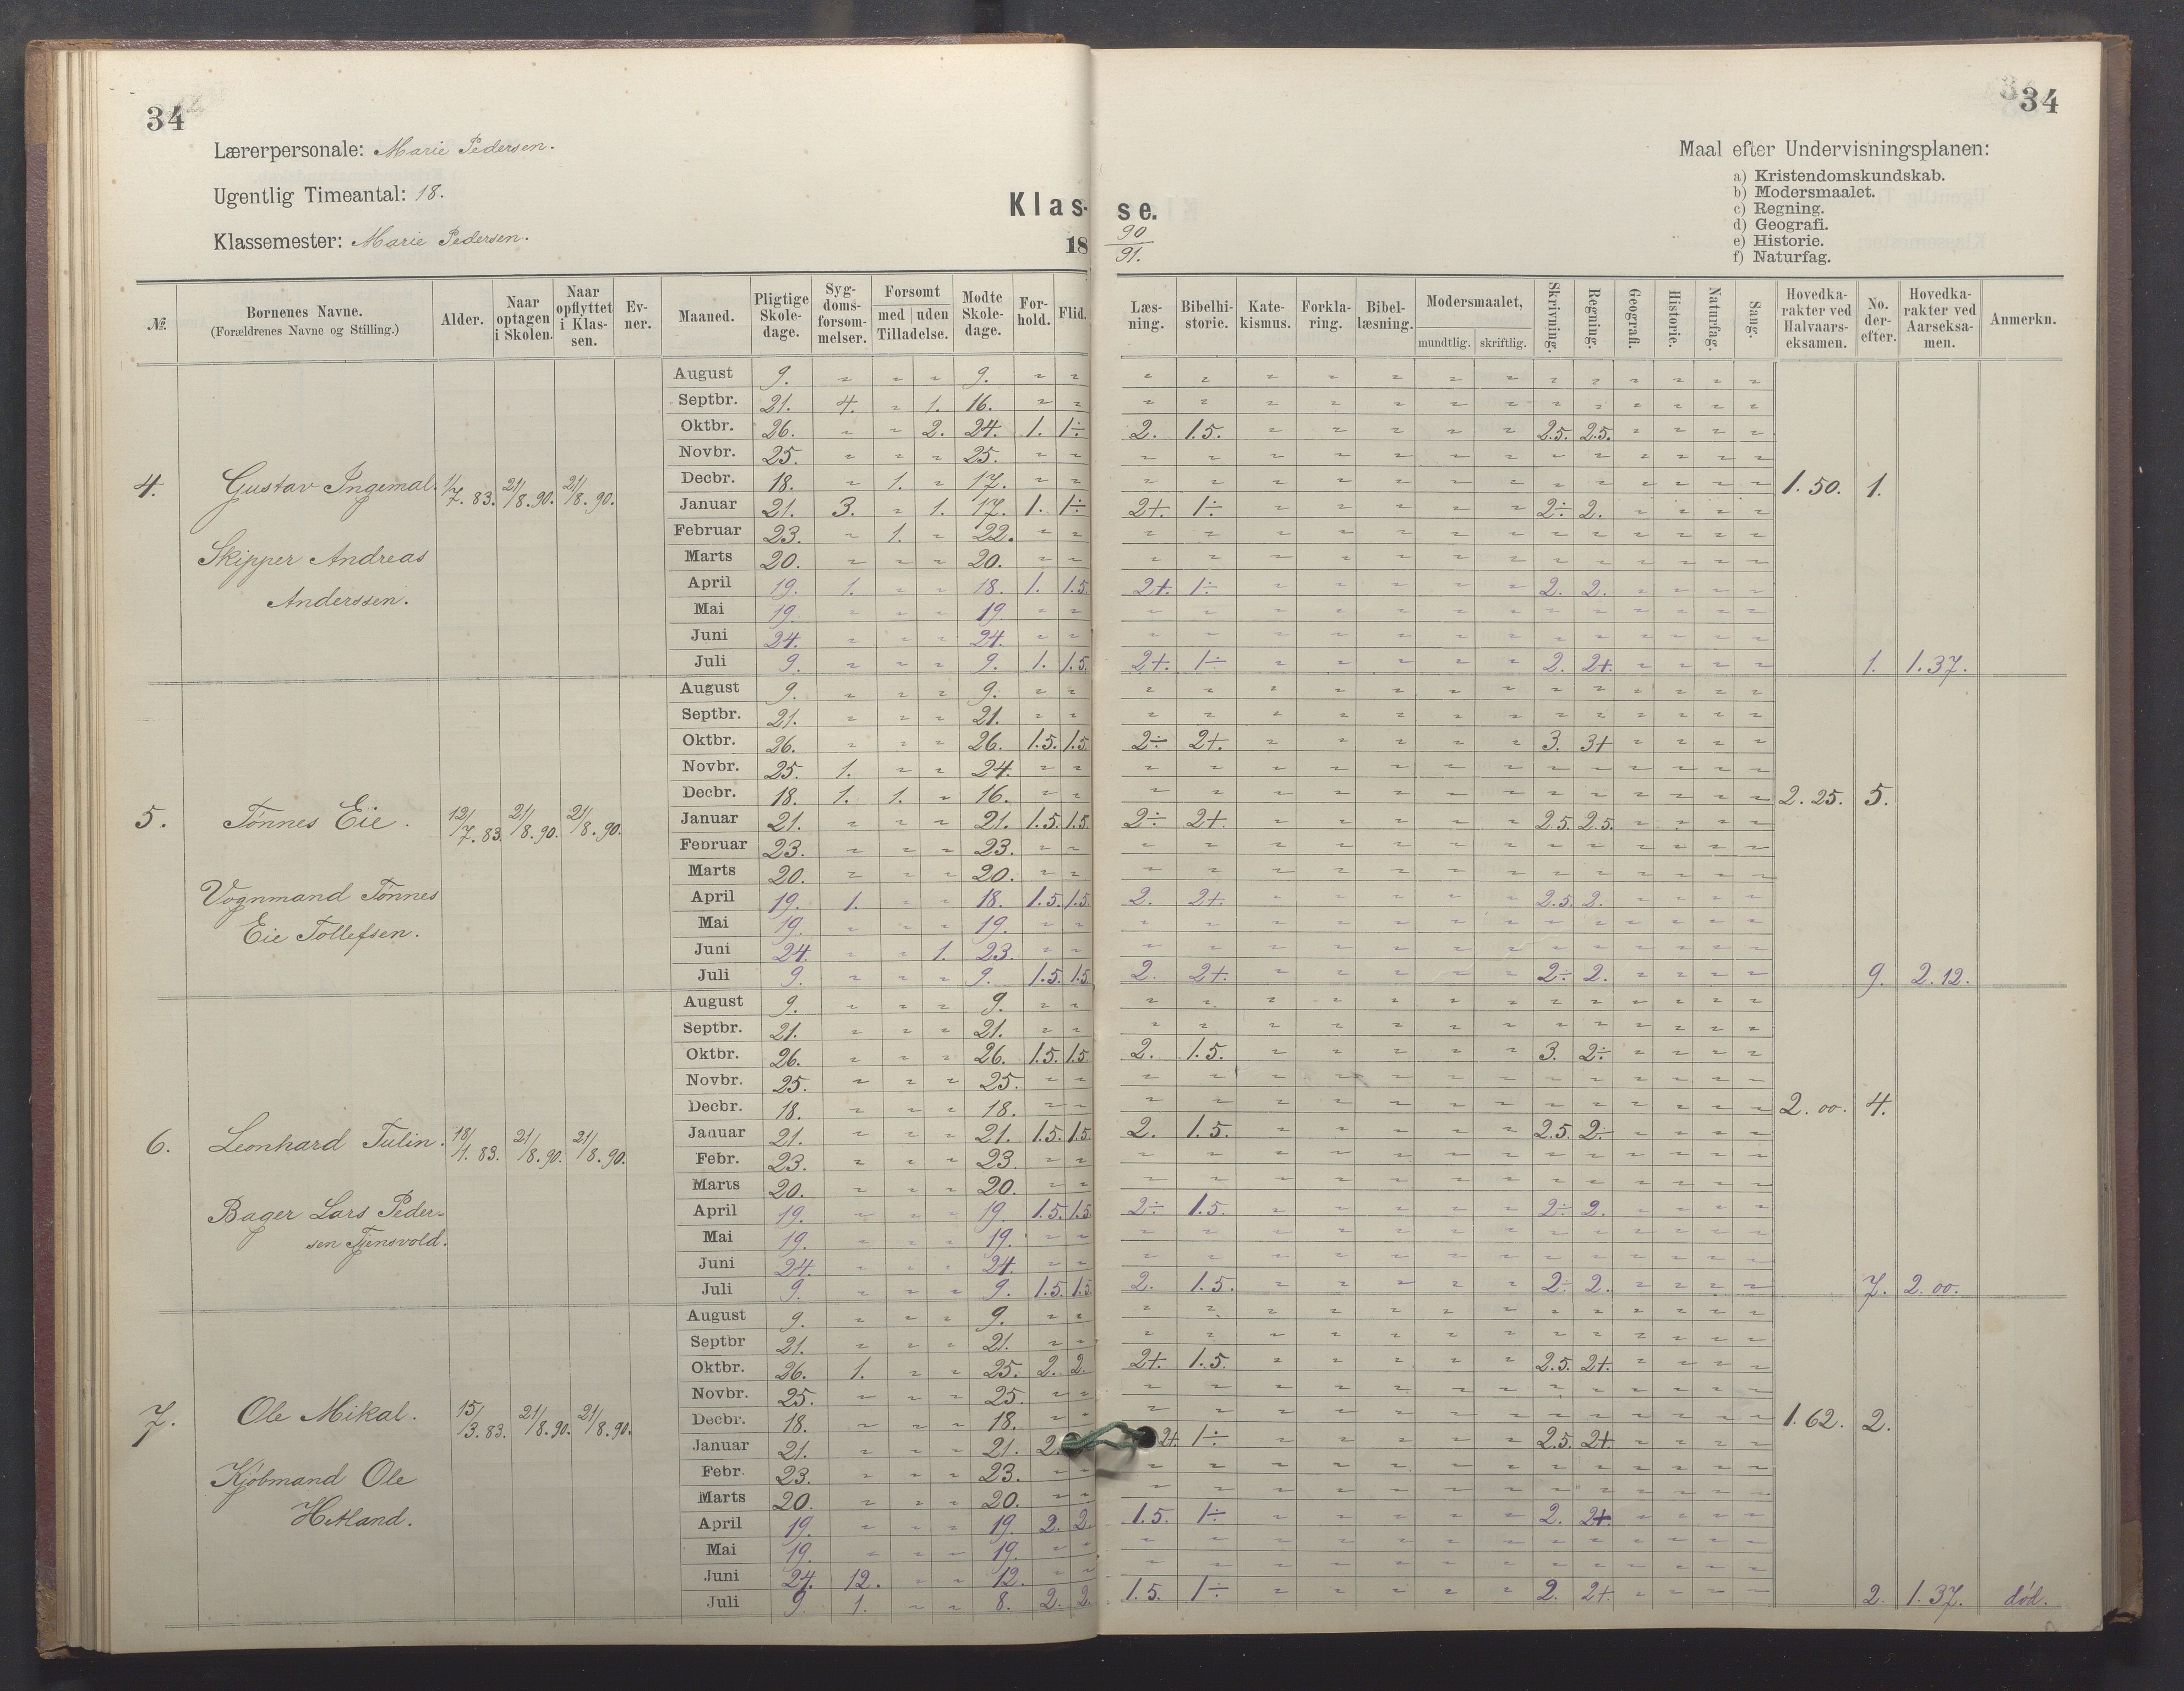 34
34
Lærerpersonale: Marie Pedersen.
Ugentlig Timeantal: 18.
Klassemester: Marie Pedersen.
Klas-
se.
18 90
91.
Maal efter Undervisningsplanen:
a) Kristendomskundskab.
b) Modersmaalet.
c) Regning.
d) Geografi.
e) Historie.
f) Naturfag.
№ Børnenes Navne. (Forældrenes Navne og Stilling.) Alder. Naar optagen i Skolen. Naar opflyttet i Klassen. Evner. Maaned. Pligtige Skoledage. Sygdomsforsømmelser. Forsømt med uden Tilladelse. Mødte Skoledage. Forhold. Flid. Læsning. Bibelhistorie. Katekismus. Forklaring. Bibellæsning. Modersmaalet, mundtlig. skriftlig. Skrivning. Regning. Geografi. Historie. Naturfag. Sang. Hovedkarakter ved Halvaarseksamen. No. derefter. Hovedkarakter ved Aarseksamen. Anmerkn.
4. Gustav Ingemal. 1/7. 83. 21/8. 90. 21/8. 90. 1.50. 1.
Skipper Andreas
Anderssen.
August 9. " " " 9. " " " " " " " " " " " " " " "
Septbr. 21. 4. " 1. 16. " " " " " " " " " " " " " " "
Oktbr. 26. " " 2. 24. 1. 1÷ 2. 1.5. " " " " " 2.5. 2.5. " " " "
Novbr. 25. " " " 25. " " " " " " " " " " " " " " "
Decbr. 18. " 1. " 17. " " " " " " " " " " " " " " "
Januar 21. 3. " 1. 17. 1. 1÷ 2+. 1÷ " " " " " 2÷ 2. " " " "
Februar 23. " 1. " 22. " " " " " " " " " " " " " " "
Marts 20. " " " 20. " " " " " " " " " " " " " " "
April 19. 1. " " 18. 1. 1.5. 2+. 1÷ " " " " " 2. 2. " " " "
Mai 19. " " " 19. " " " " " " " " " " " " " " "
Juni 24. " " " 24. " " " " " " " " " " " " " " "
Juli 9. " " " 9. 1. 1.5. 2+. 1÷ " " " " " 2. 2+. " " " " 1. 1.37.
5. Tönnes Eie. 12/7. 83. 21/8. 90. 21/8. 90. 2.25. 5.
Vognmand Tönnes
Eie Tollefsen.
August 9. " " " 9. " " " " " " " " " " " " " " "
Septbr. 21. " " " 21. " " " " " " " " " " " " " " "
Oktbr. 26. " " " 26. 1.5. 1.5. 2÷ 2+. " " " " " 3. 3+ " " " "
Novbr. 25. 1. " " 24. " " " " " " " " " " " " " " "
Decbr. 18. 1. 1. " 16. " " " " " " " " " " " " " " "
Januar 21. " " " 21. 1.5. 1.5. 2÷ 2+. " " " " " 2.5. 2.5. " " " "
Februar 23. " " " 23. " " " " " " " " " " " " " " "
Marts 20. " " " 20. " " " " " " " " " " " " " " "
April 19. 1. " " 18. 1.5. 1.5. 2. 2+. " " " " " 2.5. 2. " " " "
Mai 19. " " " 19. " " " " " " " " " " " " " " "
Juni 24. " " 1. 23. " " " " " " " " " " " " " " "
Juli 9. " " " 9. 1.5. 1.5. 2. 2+. " " " " " 2÷ 2. " " " " 9. 2.12.
6. Leonhard Tulin. 18/1. 83. 21/8. 90. 21/8. 90. 2.00. 4.
Bager Lars Peder-
sen Tjensvold.
August 9. " " " 9. " " " " " " " " " " " " " " "
Septbr. 21. " " " 21. " " " " " " " " " " " " " " "
Oktbr. 26. " " " 26. 1.5. 1.5. 2. 1.5. " " " " " 3. 2÷ " " " "
Novbr. 25. " " " 25. " " " " " " " " " " " " " " "
Decbr. 18. " " " 18. " " " " " " " " " " " " " " "
Januar 21. " " " 21. 1.5. 1.5. 2. 1.5. " " " " " 2.5. 2÷ " " " "
Febr. 23. " " " 23. " " " " " " " " " " " " " " "
Marts 20. " " " 20. " " " " " " " " " " " " " " "
April 19. " " " 19. 1.5. 1.5. 2÷ 1.5. " " " " " 2÷ 2. " " " "
Mai 19. " " " 19. " " " " " " " " " " " " " " "
Juni 24. " " " 24. " " " " " " " " " " " " " " "
Juli 9. " " " 9. 1.5. 1.5. 2. 1.5. " " " " " 2÷ 2. " " " " 7. 2.00.
7. Ole Mikal. 15/3. 83. 21/8. 90. 21/8. 90. 1.62. 2.
Kjöbmand Ole
Hetland.
August 9. " " " 9. " " " " " " " " " " " " " " "
Septbr 21. " " " 21. " " " " " " " " " " " " " " "
Oktbr. 26. 1. " " 25. 2. 2. 2+. 1.5. " " " " " 2.5. 2+. " " " "
Novbr. 25. " " " 25. " " " " " " " " " " " " " " "
Decbr. 18. " " " 18. " " " " " " " " " " " " " " "
Januar 21. " " " 21. 2. 2+. 1÷ " " " " " 2.5. 2+. " " " "
Febr. 23. " " " 23. " " " " " " " " " " " " " " "
Marts 20. " " " 20. " " " " " " " " " " " " " " "
April 19. " " " 19. 2. 2. 1.5. 1÷ " " " " " 2. 2+. " " " "
Mai 19. " " " 19. " " " " " " " " " " " " " " "
Juni 24. 12. " " 12. " " " " " " " " " " " " " " "
Juli 9. 1. " " 8. 2. 2. 1.5. 1÷ " " " " " 2. 2+. " " " " 2. 1.37. död.